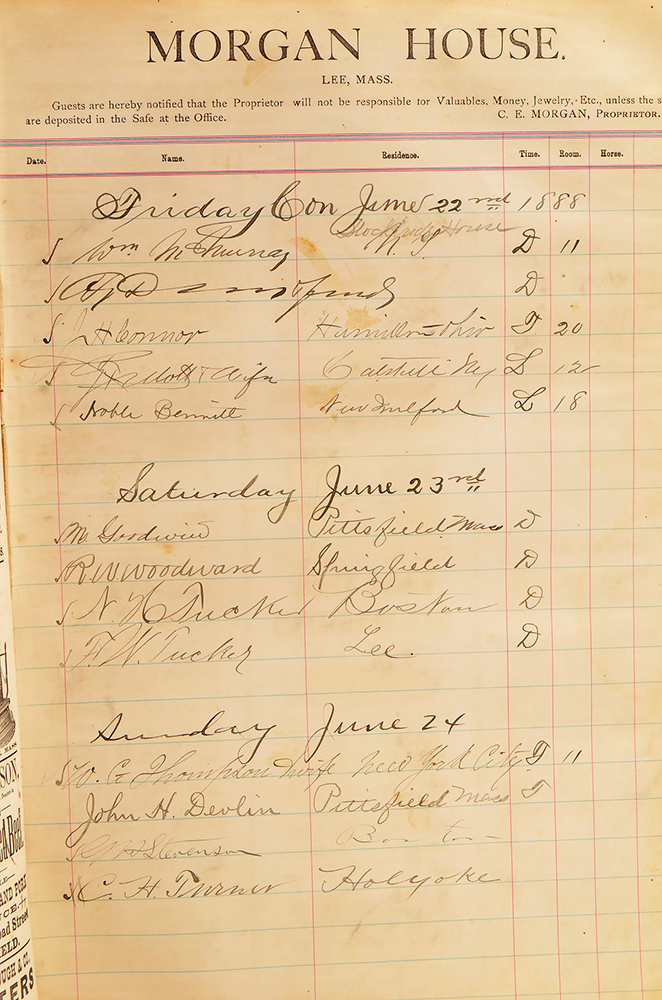 MORGAN HOUSE.
LEE, MASS.
Guests are hereby notified that the Proprietor will not be responsible for Valuables, Money, Jewelry, Etc., unless the s
are deposited in the Safe at the Office.
C. E. MORGAN, PROPRIETOR.
Date. Name. Residence. Time. Room. Horse.
Friday Con June 22nd 1888
House
Wm McMurray N. Y D 11
D
J H Connor Hamilton Ohio T 20
& Wife Catskill Ny L 12
Noble Bennitt New Milford L 18
Saturday June 23rd
M. Goodwin Pittsfield Mass D
R W Woodward Springfield D
N. H Tucker Boston D
F. W. Tucker Lee. D
Sunday June 24
W. G Thompson & wife New York City T 11
John H. Devlin Pittsfield Mass T
Stevenson Boston
C. H. Turner Holyoke
SON,
AND PORK
ad Street
ELD.
UGH & CO.
TERS